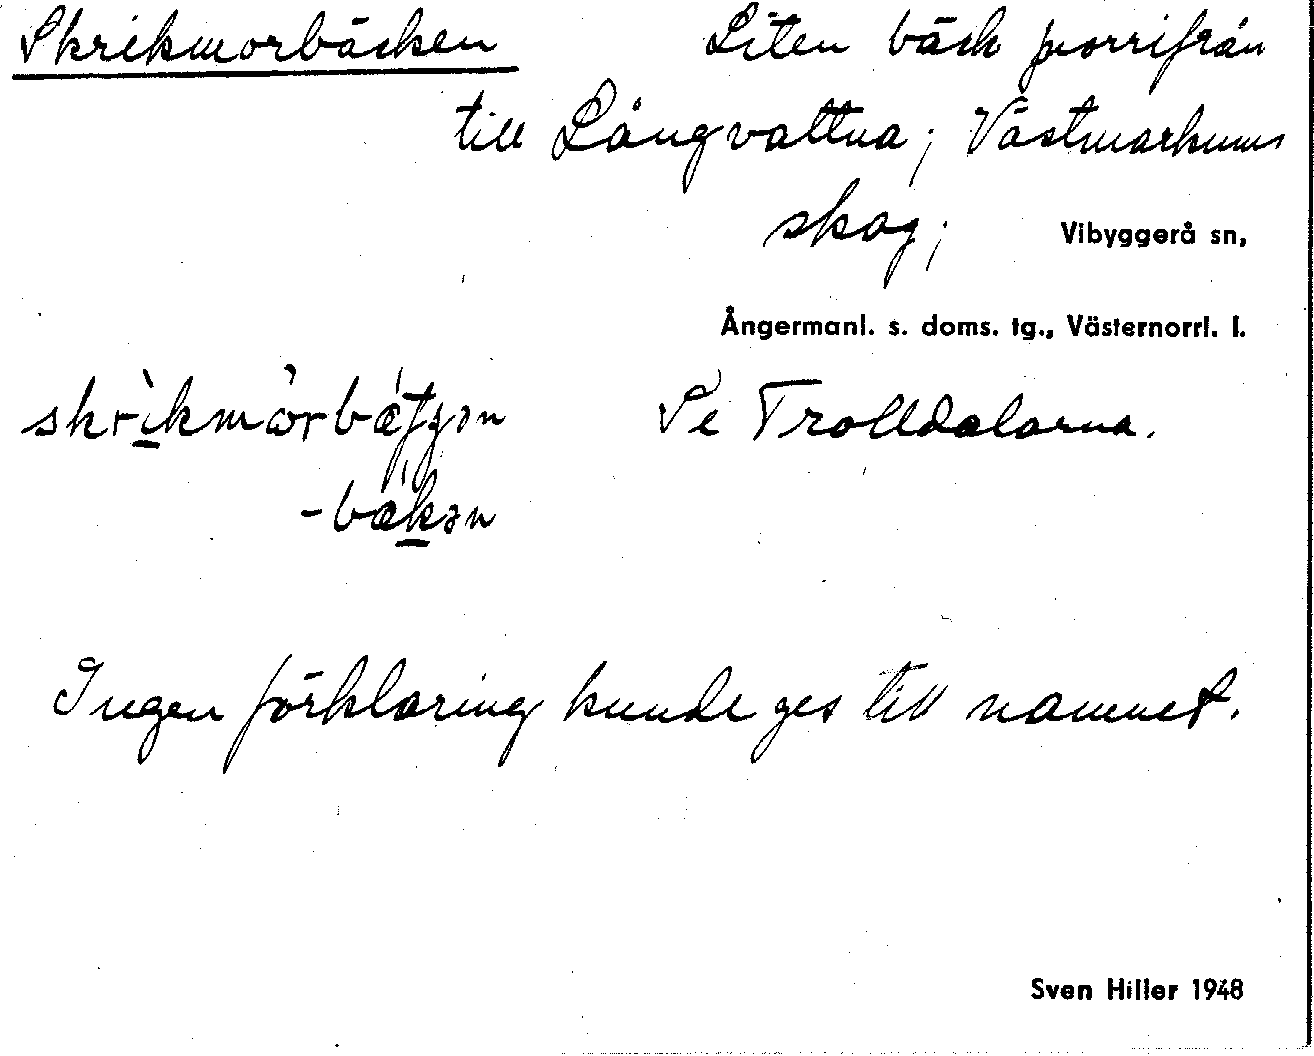 Skrikmorbäcken Liten bäck norrifrån
till Långvattna; Västmarkums
skog; Vibyggerå sn,
Ångermanl. s. doms. tg., Västernorrl. l.
Se Trolldalarna.
-bækən
Ingen förklaring kunde ges till namnet.
Sven Hiller 1948